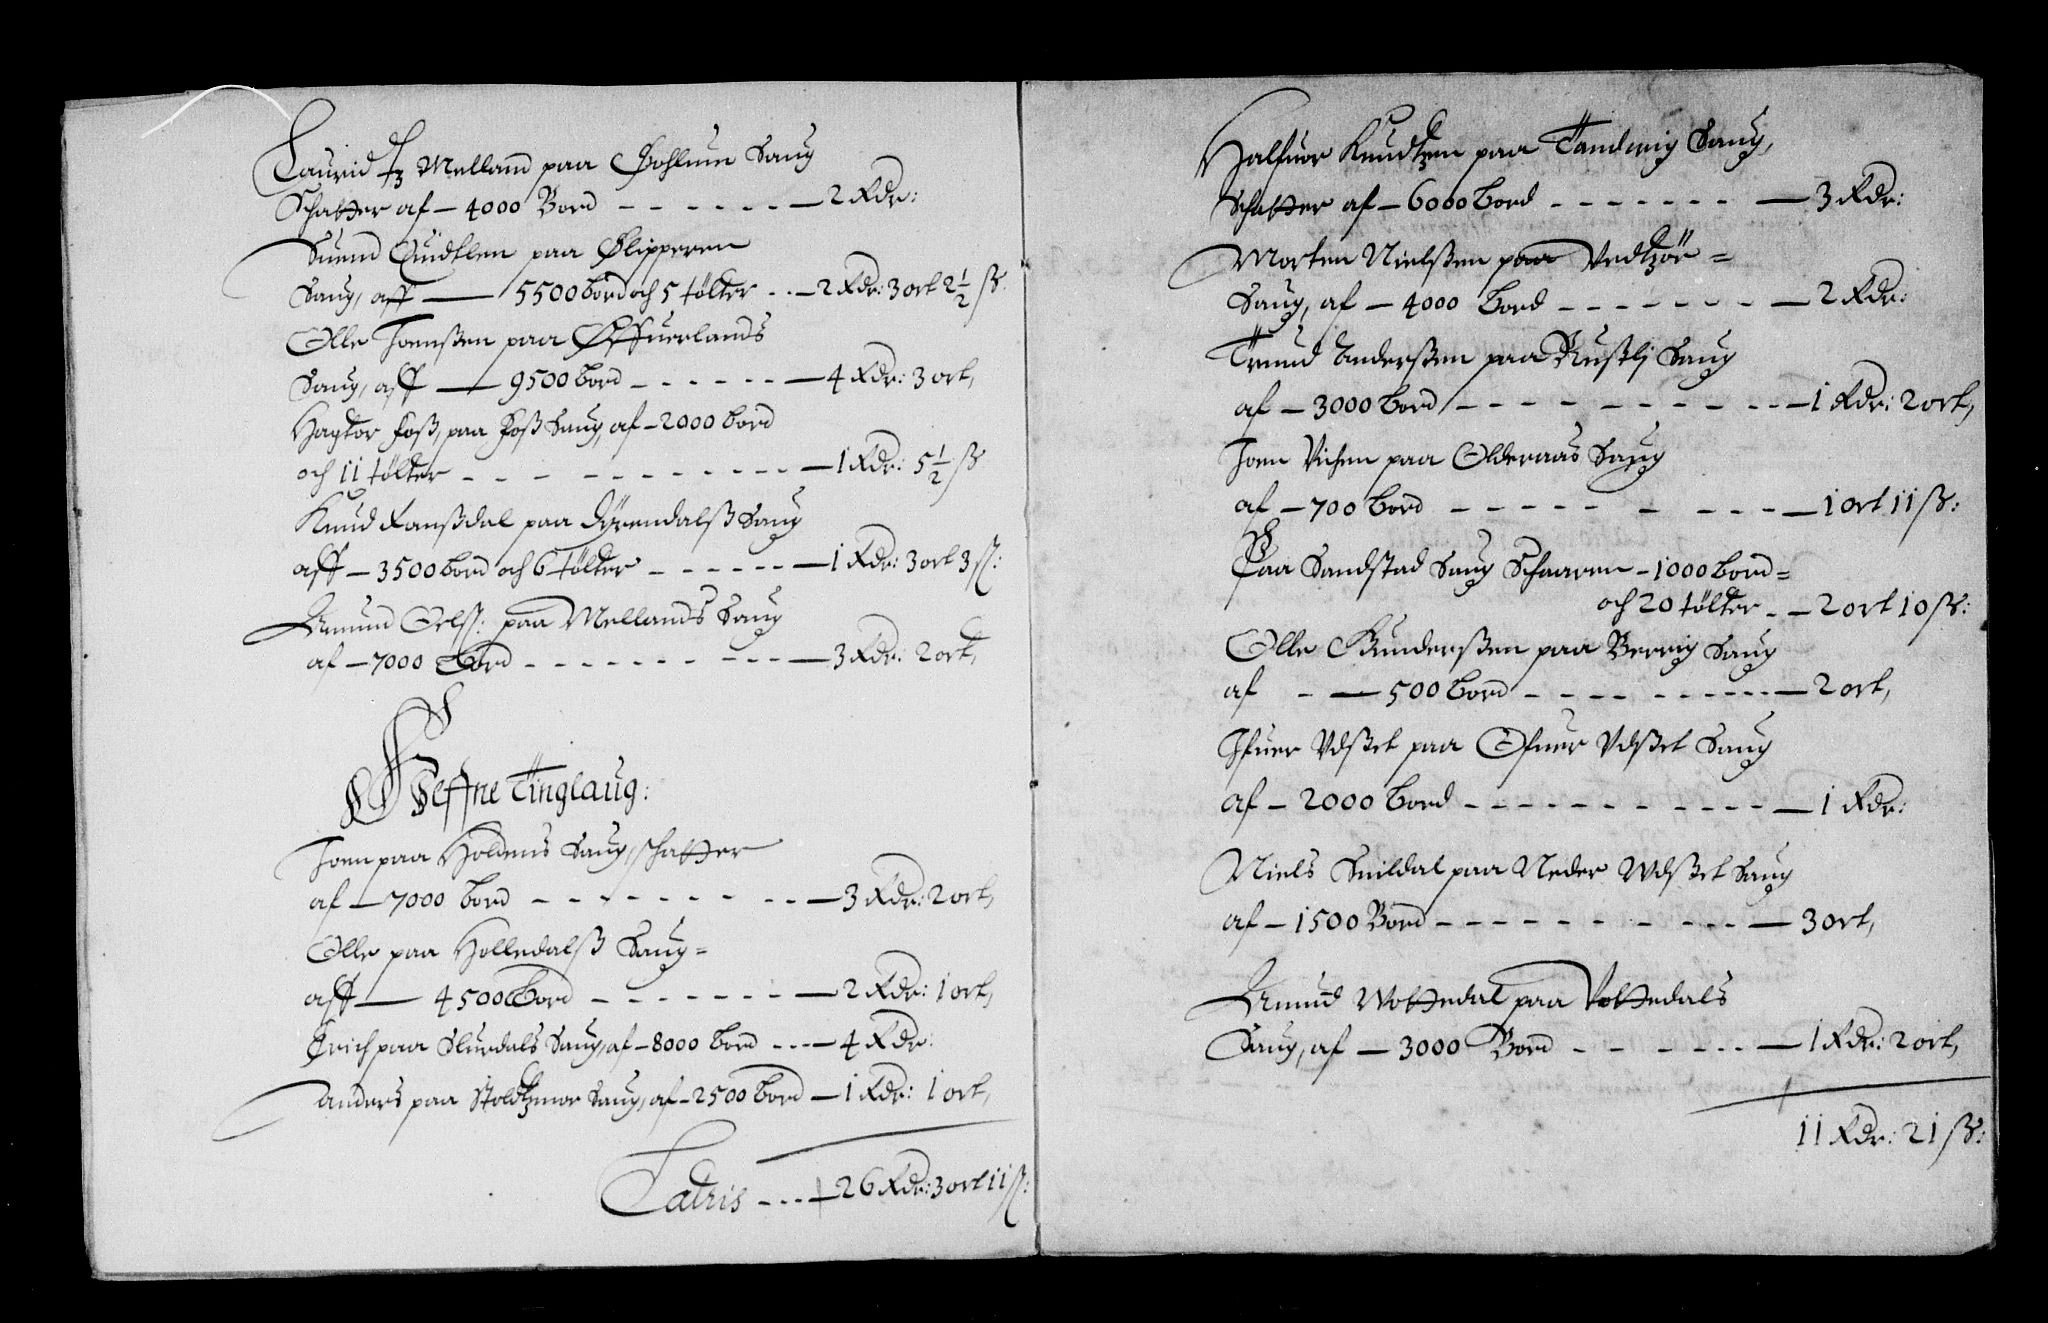 Lauridtz Melland paa Gohlum Saug
Schatter af – 4000 Bord - - - - - - — 2 Rdr:
Suend Quidtlen paa Slipperen
Saug, aff — 5500 bord och 5 tölter - - — 2 Rdr: 3 ort 2½ ß:
Olle Joenßen paa Øffuerlands
Saug, aff — 9500 bord - - - - - - — 4 Rdr: 3 ort,
Hagtor Foß, paa Foß Saug, af – 2000 bord
och 11 tölter - - - - - - - - - — 1 Rdr: 5½ ß
Knud Ramßdal paa Gyrendalß Saug
aff – 3500 bord och 6 tölter - - - - - - — 1 Rdr: 3 ort 3 ß:
Amund Oelß: paa Mellands Saug
af – 7000 Bord - - - - - - - - - — 3 Rdr: 2 ort,
Heffne Tinglaug:
Joen paa Holdens Saug, schatter
af – 7000 bord - - - - - - - - - — 3 Rdr: 2 ort,
Olle paa Holledalß Saug =
aff — 4500 Bord - - - - - - - — 2 Rdr: 1 ort,
Erich paa Slurdals Saug, af – 8000 bord - - - — 4 Rdr:
Anders paa Stoldtzmor Saug, af – 2500 bord — 1 Rdr: 1 ort,
Latris - - - — 26 Rdr: 3 ort 11 ß:
Halfuor Knudtzen paa Tandwig Saug,
Schatter af – 6000 bord - - - - - - - — 3 Rdr:
Morten Nielßen paa Vedtzör =
Saug, af – 4000 bord - - - - - - - — 2 Rdr:
Trund Anderßen paa Rußlj Saug
af – 3000 bord - - - - - - - - - - — 1 Rdr: 2 ort,
Joen Vichen paa Olderaas Saug
af – 700 bord - - - - - - - - - — 1 ort 11 ß:
Paa Sandstad Saug Schaaren – 1000 bord =
och 20 tölter - — 2 ort 10 ß:
Olle Gunderßen paa Berrig Saug
af - — 500 bord - - - - - - - - - - — 2 ort,
Ifuer Udßet paa Ofuer Udßet Saug
af – 2000 bord - - - - - - - - - - — 1 Rdr:
Niels Snildal paa Neder Wdßet Saug
af – 1500 Bord - - - - - - - - - - — 3 ort,
Amund Wottedal paa Vottedals
Saug, af — 3000 Bord - - - - - - — 1 Rdr: 2 ort,
11 Rdr: 21 ß: